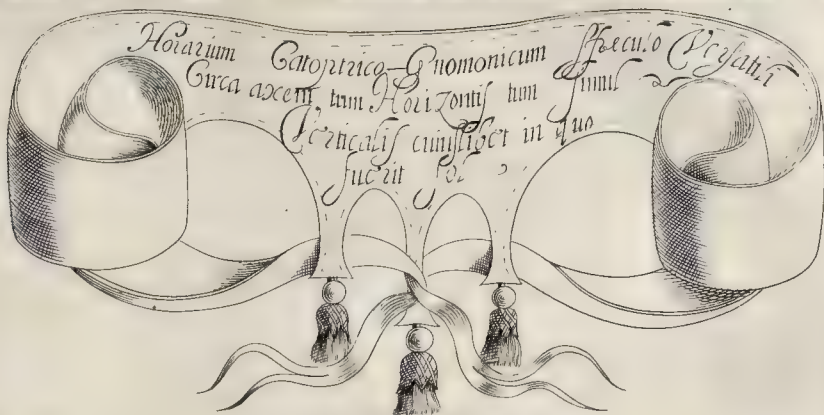 Horarium Catoptrico-Gnomonicum Speculo Versatili
Circa axem, tum Horizontis tum simul
Verticalis cuiuslibet in quo
fuerit Sol